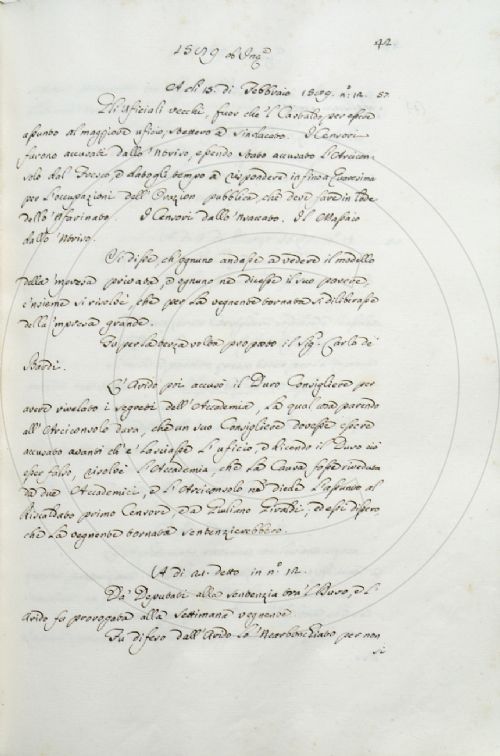 42
1589 ab Inc.e
A di 15. di Febbraio 1589. n.o 12. 57
Gli Uficiali vecchi, fuor che 'l Castaldo, per essere
assunto al maggiore ufizio, stettero a Sindacato. I Censori
furono accusati dallo 'Noviso, essendo stato accusato l'Arcicon-
solo dal Fresco, e datogli tempo a rispondere in fino a Quaresima
per l'occupazioni dell'Orazion pubblica, che deve fare in lode
dello 'Nfarinato. I Censori dallo I'l Massaio
dallo 'Noviso.
Si disse ch'ognuno andasse a vedere il modello
della Impresa privata, e ognuno ne dicesse il suo parere,
e insieme si risolvé, che per la vegnente tornata si diliberasse
della 'mpresa grande.
Fu per la terza volta proposto il Sig.r Carlo de'
Bardi.
L'Arido poi accusò il Duro Consigliere per
avere rivelato i segreti dell'Accademia, la qual cosa parendo
all'Arciconsolo dura, che un suo Consigliere dovesse essere
accusato avanti ch'e' lasciasse l'uficio, e dicendo il Duro ciò
esser falso, risolvé l'Accademia, che la Causa fosse riveduta
da due Accademici, e l'Arciconsolo ne diede l'assunto al
Riscaldato primo Censore, e a Giuliano Giraldi, ed essi dissero,
che la vegnente tornata sentenzierebbero.
A di 21. detto in n.o 12.
Da' Deputati alla sentenzia tra 'l Duro, e l'
Arido fu prorogata alla settimana vegnente.
Fu difeso dall'Arido lo per non
si